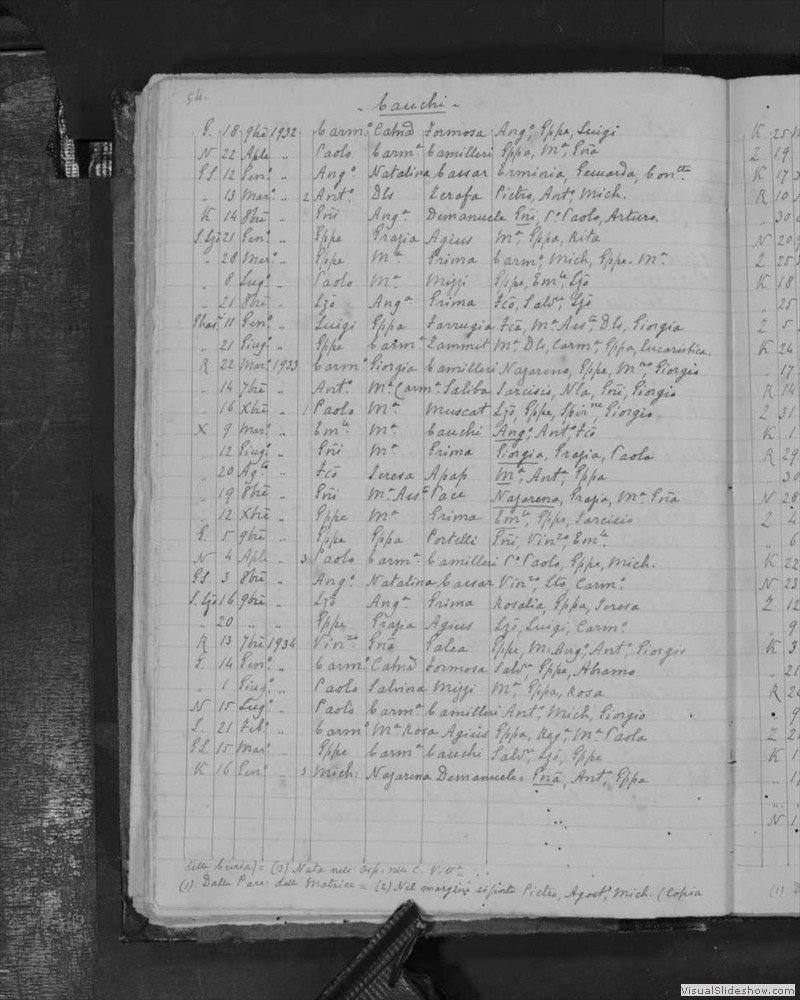 54.
- Cauchi -
G. 18 9bre 1932 Carmo Catna Formosa Ango, Gppe, Luigi
N 22 Aple " Paolo Carma Camilleri Gppa, Ma, Gna
GS. 12 Geno " Ango Natalina Cassar Erminia, Gemarda, Contta
" 13 Maro " 2 Anto Dls Zerafa Pietro, Anto, Mich.
K 14 8bre " Gni Anga Demanuele Gni, Po Paolo, Arturo.
S.Lzo 21 Geno " Gppe Grazia Agius Ma, Gppa, Rita
" 28 Maro " Gppe Ma Grima Carmo, Mich, Gppe. Ma
" 8 Lugo " Paolo Ma Mizzi Gppe, Emle, Lzo
" 21 8bre " Lzo Anga Grima Fco, Salvo, Lzo
Ghasri 11 Geno " Luigi Gppa Farrugia Fco, Ma Assta, Dls, Giorgia
" 21 Giugo " Gppe Carma Zammit Ma Dls, Carma, Gppa, Eucaristica.
R 22 Maro 1933 Carmo Giorgia Camilleri Nazareno, Gppe, Giorgio
" 14 7bre " Anto Ma Carma Saliba Tarcisio, Nla, Gni, Giorgio
" 16 Xbre " 1 Paolo Ma Muscat Lzo, Gppe, Giorgio
X 9 Maro " Emle Ma Cauchi Ango, Anto, Fco
" 12 Giugo " Gni Ma Grima Giorgia, Grazia, Paola
" 20 Agto " Fco Teresa Apap Ma, Anta, Gppa
" 19 8bre " Gni Ma Assta Pace Nazarena, Grazia, Ma Gna
" 12 Xbre " Gppe Ma Grima Emle, Gppe, Tarcisio
G. 5 9bre " Gppe Gppa Portelli Gni, Vinzo, Emle
N 4 Aple " 3 Paolo Carma Camilleri Po Paolo, Gppe, Mich.
GS. 3 8bre " Ango Natalina Cassar Vinzo, Carmo
S.Lzo 16 9bre " Lzo Anga Grima Rosalia, Gppa, Teresa
" 20 " " Gppe Grazia Agius Lzo, Luigi, Carmo
R 13 7bre 1934 Vinzo Gna Galea Gppe, Anto, Giorgio
G. 14 Geno " Carmo Catna Formosa Salvo, Gppe, Abramo
" 1 Giugo " Paolo Salvina Mizzi Ma, Gppa, Rosa
N 15 Lugo " Paolo Carma Camilleri Anto, Mich, Giorgio
S. 21 Febo " Carmo Ma Rosa Agius Gppa, Rega, Ma Paola
GS. 15 Maro " Gppe Carma Cauchi Salvo, Lzo, Gppe
K 16 Geno " 3 Mich: Nazarena Demanuele Gna, Anta, Gppa
della Curia) = (3) Nata nell' Osp. nella C. Vitta
(1). Dalla Parr: della Matrice = (2) Nel margine si porta Pietro, Agosto, Mich. (Copia
K 25
Z 19
K 17
R 10
" 30
N 20
Z 25
K 18
" 25
Z 5
K 24
" 17
R 14
Z 31
K 1
R 29
30
N 28
Z 4
" 6
K 22
N 23
Z 12
" 9
K 3
" 21
R 2
9
Z 2
K 1
N 1
VisualSlideshow.com